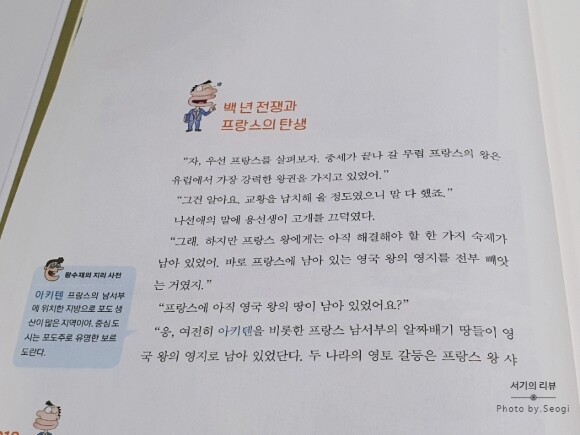 백 년 전쟁과
프랑스의 탄생
"자, 우선 프랑스를 살펴보자. 중세가 끝나 갈 무렵 프랑스의 왕은
유럽에서 가장 강력한 왕권을 가지고 있었어."
"그건 알아요. 교황을 납치해 올 정도였으니 말 다 했죠."
나선애의 말에 용선생이 고개를 끄덕였다.
"그래. 하지만 프랑스 왕에게는 아직 해결해야 할 한 가지 숙제가
남아 있었어. 바로 프랑스에 남아 있는 영국 왕의 영지를 전부 빼앗
는 거였지."
"프랑스에 아직 영국 왕의 땅이 남아 있었어요?"
"응, 여전히 아키텐을 비롯한 프랑스 남서부의 알짜배기 땅들이 영
국 왕의 영지로 남아 있었단다. 두 나라의 영토 갈등은 프랑스 왕 샤
왕수재의 지리 사전
아키텐 프랑스의 남서부
에 위치한 지방으로 포도 생
산이 많은 지역이야. 중심 도
시는 포도주로 유명한 보르
도란다.
서기의 리뷰
Photo by.Seogi